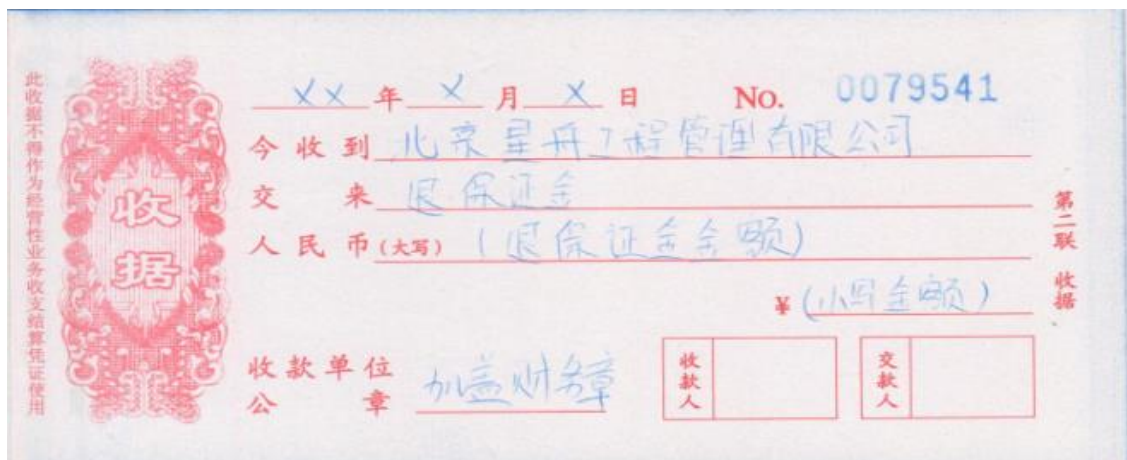 此收据不得作为经营性业务收支结算凭证使用
收据
XX 年 X 月 X 日 No. 0079541
今收到 北京星舟工程管理有限公司
交 来 退保证金
人民币(大写) (退保证金金额)
¥ (小写金额)
收款单位
公 章 加盖财务章
收款人
交款人
第二联 收据